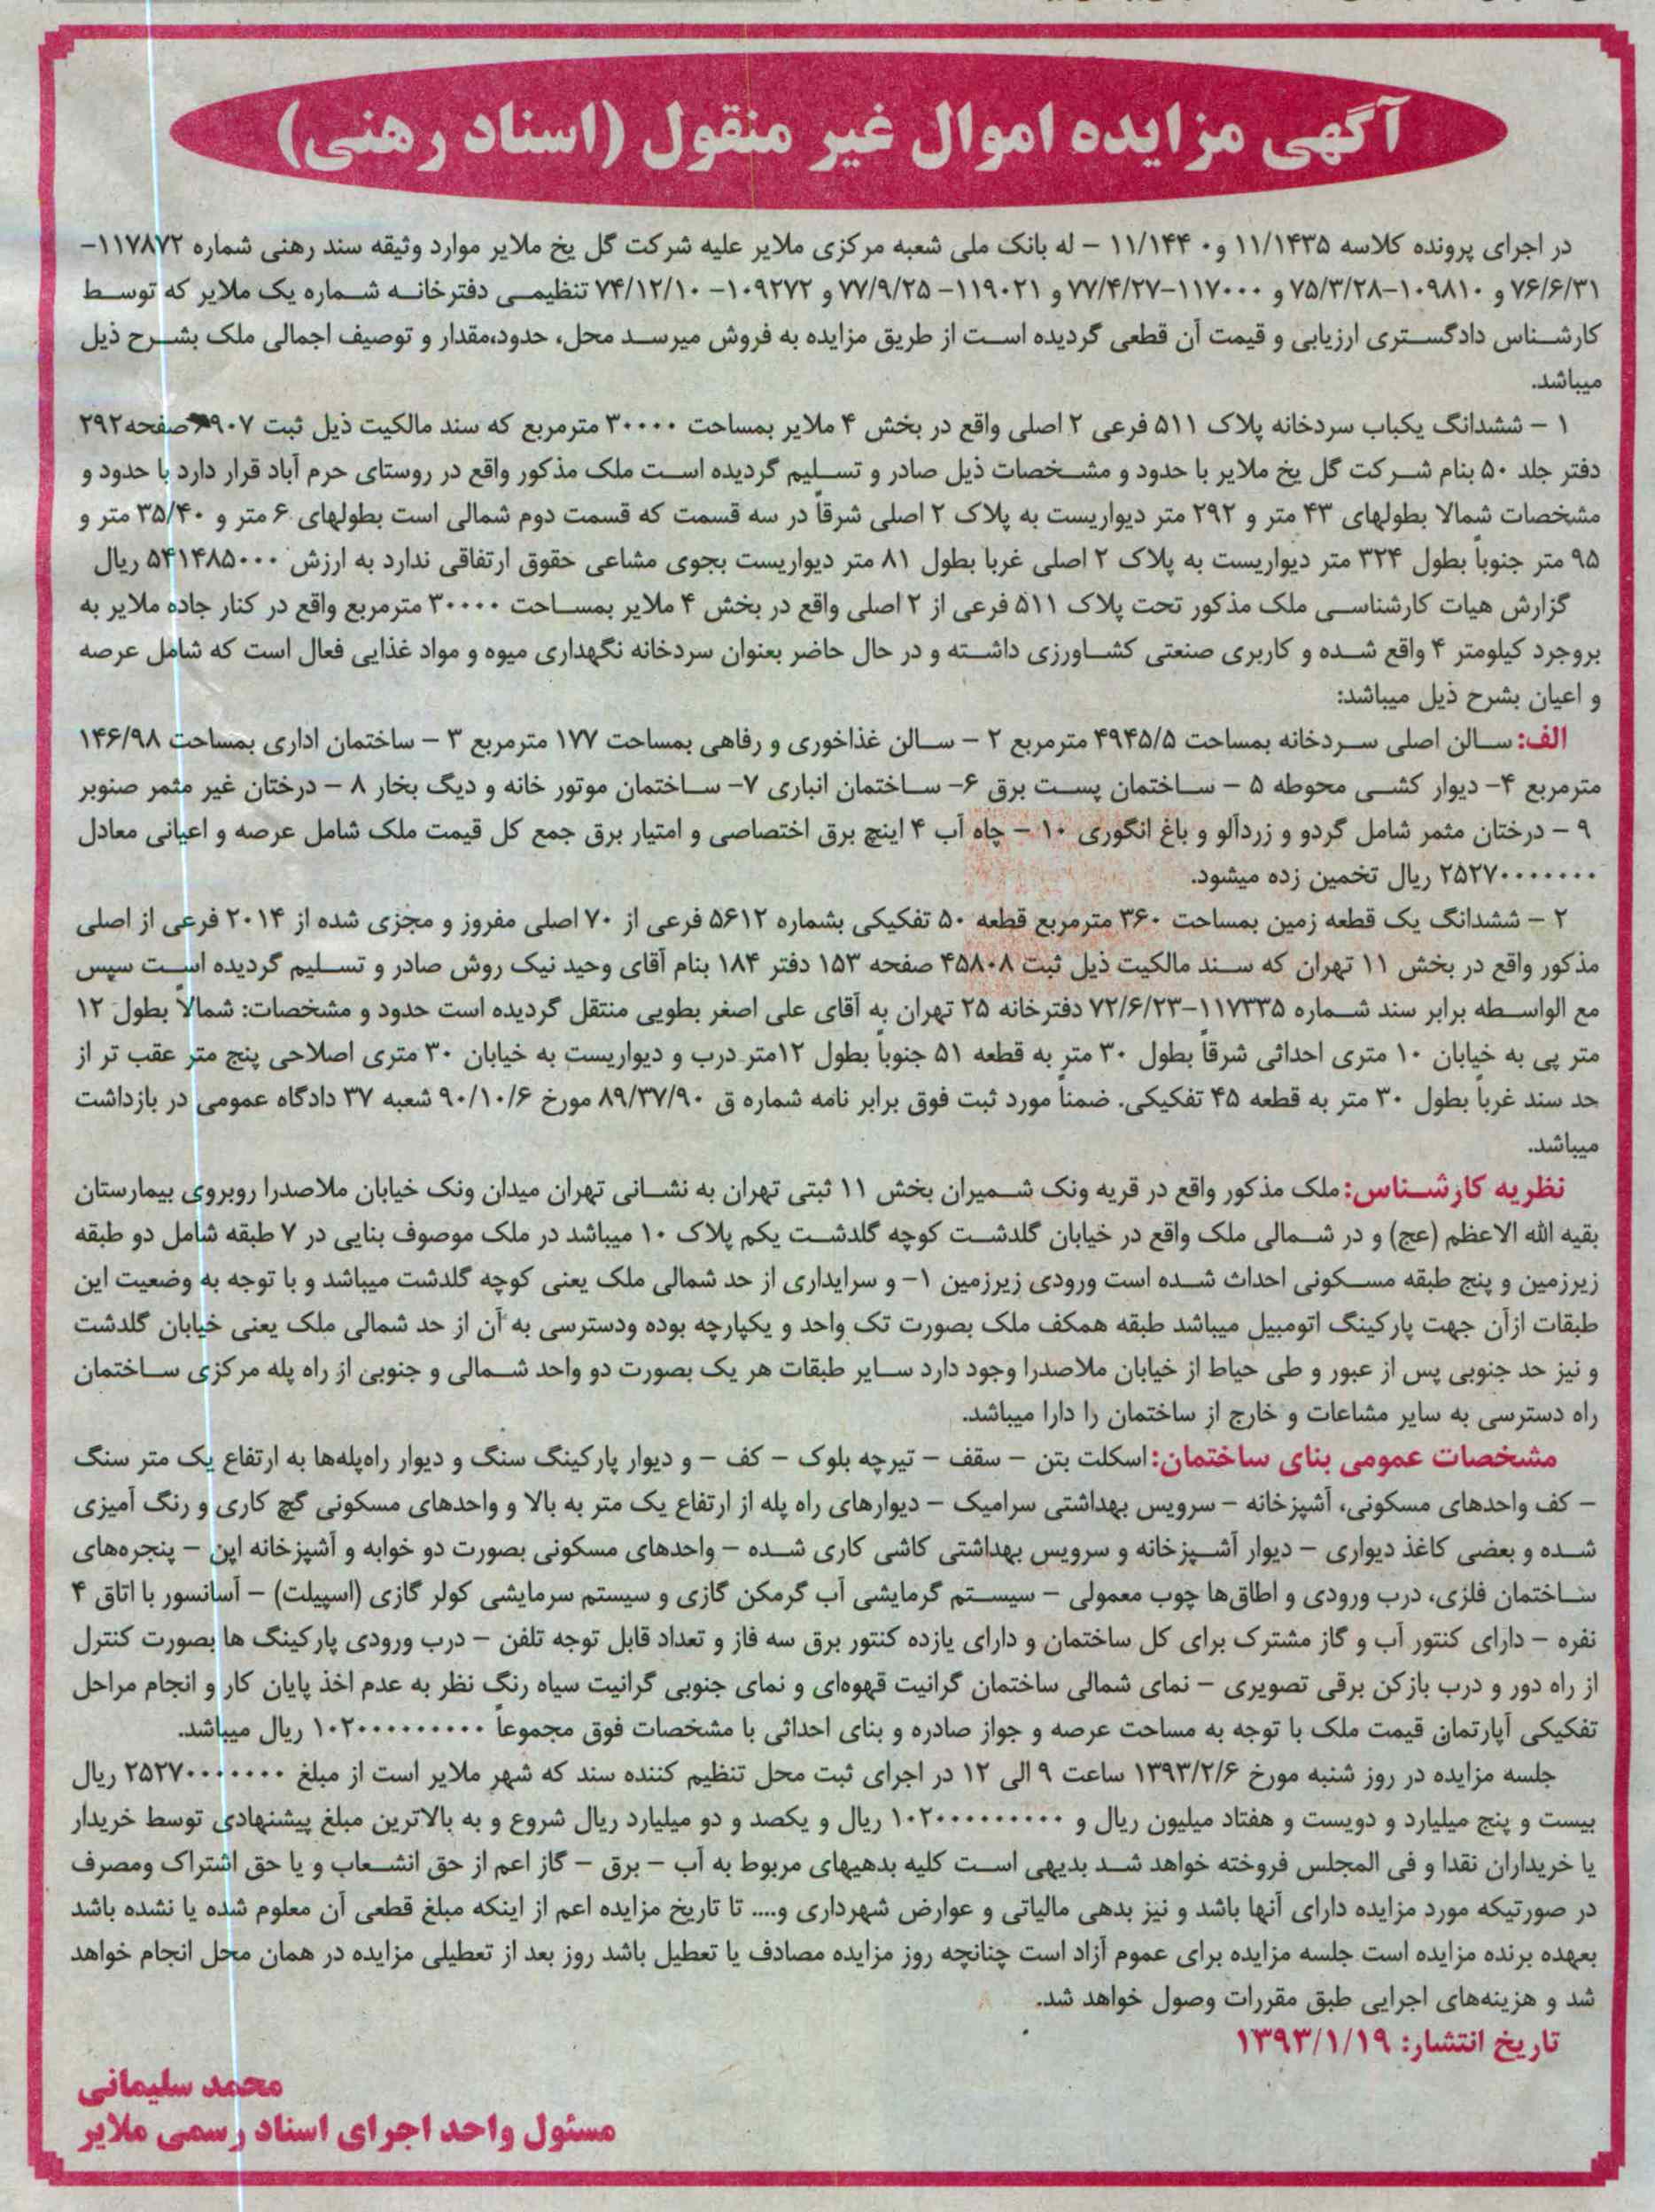 آگهی مزایده اموال غیر منقول (اسناد رهنی)
در اجرای پرونده کلاسه ۱۱/۱۴۳۵ و۱۱/۱۴۴۰ – له بانک ملی شعبه مرکزی ملایر علیه شرکت گل یخ ملایر موارد وثیقه سند رهنی شماره ۱۱۷۸۷۲–
۷۶/۶/۳۱ و ۱۰۹۸۱۰–۷۵/۳/۲۸ و ۱۱۷۰۰۰–۷۷/۴/۲۷ و ۱۱۹۰۲۱– ۷۷/۹/۲۵ و ۱۰۹۲۷۲– ۷۴/۱۲/۱۰ تنظیمی دفترخانه شماره یک ملایر که توسط
کارشناس دادگستری ارزیابی و قیمت آن قطعی گردیده است از طریق مزایده به فروش میرسد محل، حدود،مقدار و توصیف اجمالی ملک بشرح ذیل
میباشد.
۱ – ششدانگ یکباب سردخانه پلاک ۵۱۱ فرعی ۲ اصلی واقع در بخش ۴ ملایر بمساحت ۳۰۰۰۰ مترمربع که سند مالکیت ذیل ثبت صفحه۲۹۲
دفتر جلد ۵۰ بنام شرکت گل یخ ملایر با حدود و مشخصات ذیل صادر و تسلیم گردیده است ملک مذکور واقع در روستای حرم آباد قرار دارد با حدود و
مشخصات شمالا بطولهای ۴۳ متر و ۲۹۲ متر دیواریست به پلاک ۲ اصلی شرقاً در سه قسمت که قسمت دوم شمالی است بطولهای ۶ متر و ۳۵/۴۰ متر و
۹۵ متر جنوباً بطول ۳۲۴ متر دیواریست به پلاک ۲ اصلی غربا بطول ۸۱ متر دیواریست بجوی مشاعی حقوق ارتفاقی ندارد به ارزش ۵۴۱۴۸۵۰۰۰ ریال
گزارش هیات کارشناسی ملک مذکور تحت پلاک ۵۱۱ فرعی از ۲ اصلی واقع در بخش ۴ ملایر بمساحت ۳۰۰۰۰ مترمربع واقع در کنار جاده ملایر به
بروجرد کیلومتر ۴ واقع شده و کاربری صنعتی کشاورزی داشته و در حال حاضر بعنوان سردخانه نگهداری میوه و مواد غذایی فعال است که شامل عرصه
و اعیان بشرح ذیل میباشد:
الف: سالن اصلی سردخانه بمساحت ۴۹۴۵/۵ مترمربع ۲ – سالن غذاخوری و رفاهی بمساحت ۱۷۷ مترمربع ۳ – ساختمان اداری بمساحت ۱۴۶/۹۸
مترمربع ۴– دیوار کشی محوطه ۵ – ساختمان پست برق ۶– ساختمان انباری ۷– ساختمان موتور خانه و دیگ بخار ۸ – درختان غیر مثمر صنوبر
۹ – درختان مثمر شامل گردو و زردآلو و باغ انگوری ۱۰ – چاه آب ۴ اینچ برق اختصاصی و امتیاز برق جمع کل قیمت ملک شامل عرصه و اعیانی معادل
۲۵۲۷۰۰۰۰۰۰۰ ریال تخمین زده میشود.
۲ – ششدانگ یک قطعه زمین بمساحت ۳۶۰ مترمربع قطعه ۵۰ تفکیکی بشماره ۵۶۱۲ فرعی از ۷۰ اصلی مفروز و مجزی شده از ۲۰۱۴ فرعی از اصلی
مذکور واقع در بخش ۱۱ تهران که سند مالکیت ذیل ثبت ۴۵۸۰۸ صفحه ۱۵۳ دفتر ۱۸۴ بنام آقای وحید نیک روش صادر و تسلیم گردیده است سپس
مع الواسطه برابر سند شماره ۱۱۷۳۳۵–۷۲/۶/۲۳ دفترخانه ۲۵ تهران به آقای علی اصغر بطویی منتقل گردیده است حدود و مشخصات: شمالاً بطول ۱۲
متر پی به خیابان ۱۰ متری احداثی شرقاً بطول ۳۰ متر به قطعه ۵۱ جنوباً بطول ۱۲متر درب و دیواریست به خیابان ۳۰ متری اصلاحی پنج متر عقب تر از
حد سند غرباً بطول ۳۰ متر به قطعه ۴۵ تفکیکی. ضمناً مورد ثبت فوق برابر نامه شماره ق ۸۹/۳۷/۹۰ مورخ ۹۰/۱۰/۶ شعبه ۳۷ دادگاه عمومی در بازداشت
میباشد.
نظریه کارشناس: ملک مذکور واقع در قریه ونک شمیران بخش ۱۱ ثبتی تهران به نشانی تهران میدان ونک خیابان ملاصدرا روبروی بیمارستان
بقیه الله الاعظم (عج) و در شمالی ملک واقع در خیابان گلدشت کوچه گلدشت یکم پلاک ۱۰ میباشد در ملک موصوف بنایی در ۷ طبقه شامل دو طبقه
زیرزمین و پنج طبقه مسکونی احداث شده است ورودی زیرزمین ۱– و سرایداری از حد شمالی ملک یعنی کوچه گلدشت میباشد و با توجه به وضعیت این
طبقات ازآن جهت پارکینگ اتومبیل میباشد طبقه همکف ملک بصورت تک واحد و یکپارچه بوده ودسترسی به آن از حد شمالی ملک یعنی خیابان گلدشت
و نیز حد جنوبی پس از عبور و طی حیاط از خیابان ملاصدرا وجود دارد سایر طبقات هر یک بصورت دو واحد شمالی و جنوبی از راه پله مرکزی ساختمان
راه دسترسی به سایر مشاعات و خارج از ساختمان را دارا میباشد.
مشخصات عمومی بنای ساختمان: اسکلت بتن – سقف – تیرچه بلوک – کف – و دیوار پارکینگ سنگ و دیوار راه‌پله‌ها به ارتفاع یک متر سنگ
– کف واحدهای مسکونی، آشپزخانه – سرویس بهداشتی سرامیک – دیوارهای راه پله از ارتفاع یک متر به بالا و واحدهای مسکونی گچ کاری و رنگ آمیزی
شده و بعضی کاغذ دیواری – دیوار آشپزخانه و سرویس بهداشتی کاشی کاری شده – واحدهای مسکونی بصورت دو خوابه و آشپزخانه اپن – پنجره‌های
ساختمان فلزی، درب ورودی و اطاق‌ها چوب معمولی – سیستم گرمایشی آب گرمکن گازی و سیستم سرمایشی کولر گازی (اسپیلت) – آسانسور با اتاق ۴
نفره – دارای کنتور آب و گاز مشترک برای کل ساختمان و دارای یازده کنتور برق سه فاز و تعداد قابل توجه تلفن – درب ورودی پارکینگ ها بصورت کنترل
از راه دور و درب بازکن برقی تصویری – نمای شمالی ساختمان گرانیت قهوه‌ای و نمای جنوبی گرانیت سیاه رنگ نظر به عدم اخذ پایان کار و انجام مراحل
تفکیکی آپارتمان قیمت ملک با توجه به مساحت عرصه و جواز صادره و بنای احداثی با مشخصات فوق مجموعاً ۱۰۲۰۰۰۰۰۰۰۰۰ ریال میباشد.
جلسه مزایده در روز شنبه مورخ ۱۳۹۳/۲/۶ ساعت ۹ الی ۱۲ در اجرای ثبت محل تنظیم کننده سند که شهر ملایر است از مبلغ ۲۵۲۷۰۰۰۰۰۰۰ ریال
بیست و پنج میلیارد و دویست و هفتاد میلیون ریال و ۱۰۲۰۰۰۰۰۰۰۰۰ ریال و یکصد و دو میلیارد ریال شروع و به بالاترین مبلغ پیشنهادی توسط خریدار
یا خریداران نقدا و فی المجلس فروخته خواهد شد بدیهی است کلیه بدهیهای مربوط به آب – برق – گاز اعم از حق انشعاب و یا حق اشتراک ومصرف
در صورتیکه مورد مزایده دارای آنها باشد و نیز بدهی مالیاتی و عوارض شهرداری و.... تا تاریخ مزایده اعم از اینکه مبلغ قطعی آن معلوم شده یا نشده باشد
بعهده برنده مزایده است جلسه مزایده برای عموم آزاد است چنانچه روز مزایده مصادف یا تعطیل باشد روز بعد از تعطیلی مزایده در همان محل انجام خواهد
شد و هزینه‌های اجرایی طبق مقررات وصول خواهد شد.
تاریخ انتشار: ۱۳۹۳/۱/۱۹
محمد سلیمانی
مسئول واحد اجرای اسناد رسمی ملایر